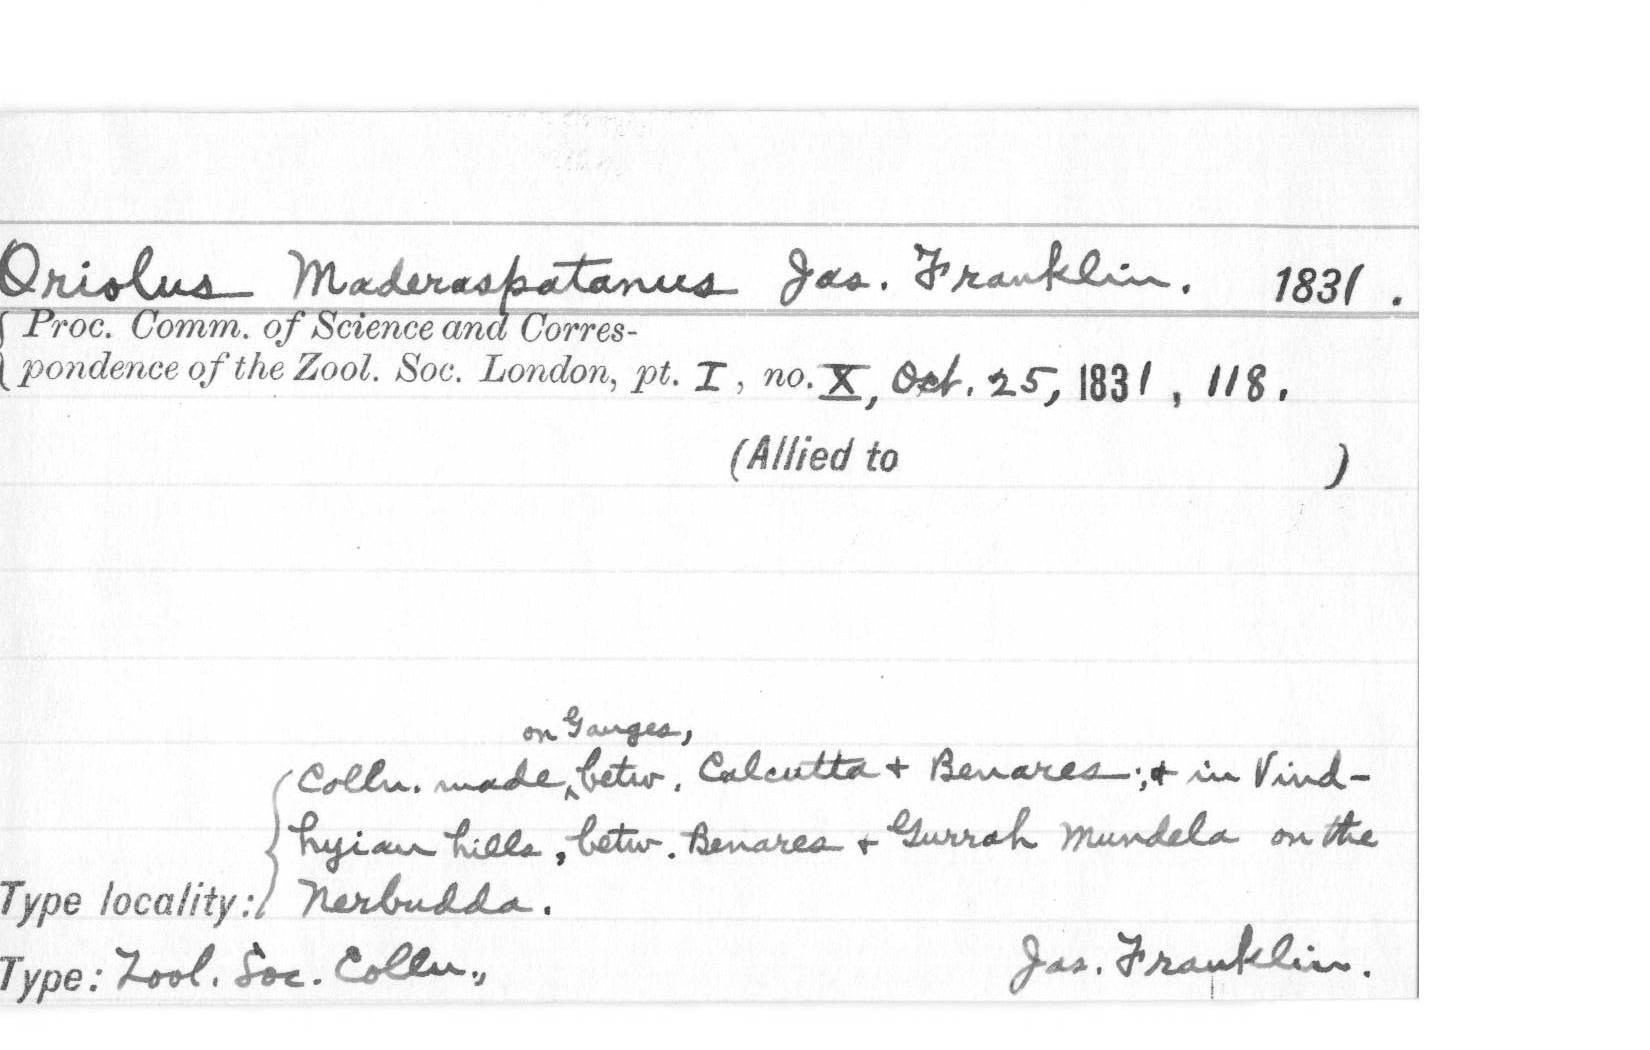 Oriolus Maderaspatanus Jas. Franklin. 1831.
Proc. Comm. of Science and Corres-
pondence of the Zool. Soc. London, pt. I, no. X, Oct. 25, 1831, 118.
(Allied to )
on Ganges,
Colln. made betw. Calcutta + Benares; + in Vind-
hyian hills, betw. Benares + Gurrah Mundela on the
Type locality: Nerbudda.
Type: Zool. Soc. Colln., Jas. Franklin.